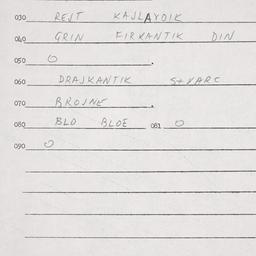 030 REJT KAJLAYDIK
040 GRIN FIRKANTIK DIN
050 O .
060 DRAJKANTIK SWARC
070 BROJNE .
080 BLO BLOE 081 O
090 O